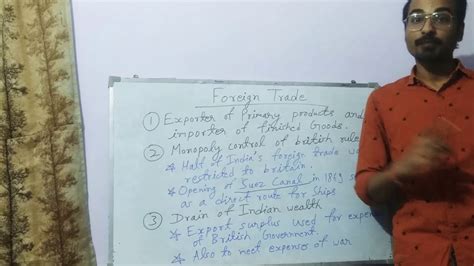 Foreign Trade
① Exporter of Primary products and
importer of finished Goods.
② Monopoly control of british rule
* Half of India's foreign trade
restricted to britain.
* Opening of Suez Canal in 1869
as a direct route for ships
③ Drain of Indian wealth
* Export surplus used for
of British Government.
* Also to meet expenses of war